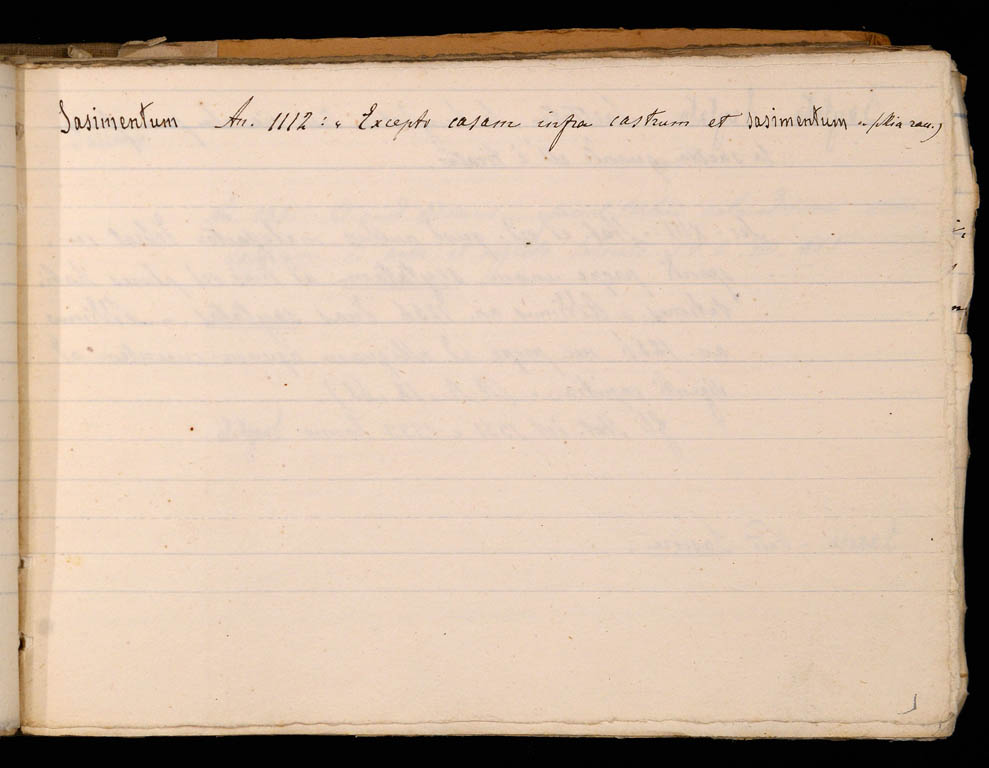 Sasimentum An. 1112: „ Excepto casam infra castrum et sasimentum „ (Mia racc.)